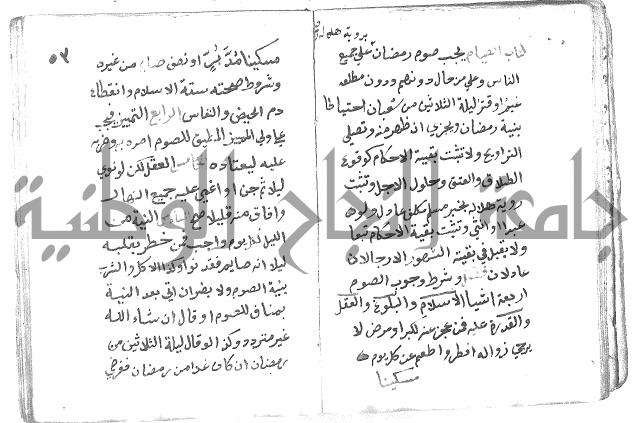 برؤية هلاله
كتاب الصيام يجب صوم رمضان على جميع
الناس وعلى من حال دونهم ودون مطلعه
غيم او قتر ليلة الثلاثين من شعبان احتياطا
بنية رمضان ويجزي ان ظهر منه وتصلى
التراويح ولا تثبت بقية الاحكام كوقوع
الطلاق والعتق وحلول الاجل وتثبت
رؤية هلاله بخبر مسلم مكلف عدل ولو
عبدا او انثى وتثبت بقية الاحكام تبعا
ولا يقبل في بقية الشهور الا رجلان
عدلان وشرط وجوب الصوم
اربعة اشيا الاسلام والبلوغ والعقل
والقدرة عليه فمن عجز عنه لكبر او مرض لا
يرجى زواله افطر واطعم عن كل يوم
مسكينا
٥٣
مسكينا مد بر او نصف صاع من غيره
وشروط صحته ستة الاسلام وانقطاع
دم الحيض والنفاس الرابع التمييز فيجب
على ولي المميز المطيق للصوم امره به وضربه
عليه ليعتاده الخامس العقل لكن لو نوى
ليلا ثم جن او اغمي عليه جميع النهار
وافاق منه قليلا صح السادس النية من
الليل لكل يوم واجب فمن خطر بقلبه
ليلا انه صايم فقد نوى وكذا الاكل والشرب
بنية الصوم ولا يضر ان اتى بعد النية
بمناف للصوم او قال ان شاء الله
غير متردد وكذا لو قال ليلة الثلاثين من
رمضان ان كان غدا من رمضان ففرضي
جامعة النجاح الوطنية